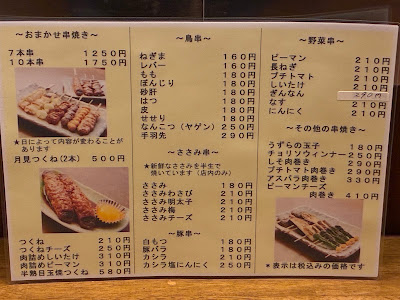 ～おまかせ串焼き～
7本串 1250円
10本串 1750円
★日によって内容が変わることが
あります
月見つくね(2本) 500円
つくね 210円
つくねチーズ 250円
肉詰めしいたけ 310円
肉詰めピーマン 310円
半熟目玉焼つくね 580円
～鳥串～
ねぎま 160円
レバー 160円
もも 180円
ぼんじり 180円
砂肝 180円
はつ 180円
皮 180円
せせり 180円
なんこつ（ヤゲン） 250円
手羽先 290円
～ささみ串～
★新鮮なささみを半生で
焼いています（店内のみ）
ささみ 180円
ささみわさび 210円
ささみ明太子 210円
ささみ梅 210円
ささみチーズ 210円
～豚串～
白もつ 180円
豚バラ 180円
カシラ 210円
カシラ塩にんにく 250円
～野菜串～
ピーマン 210円
長ねぎ 210円
プチトマト 210円
しいたけ 210円
ぎんなん 290円
なす 210円
にんにく 210円
～その他の串焼き～
うずらの玉子 180円
チョリソウィンナー 250円
しそ肉巻き 290円
プチトマト肉巻き 290円
アスパラ肉巻き 310円
ピーマンチーズ
肉巻き 410円
＊表示は税込みの価格です